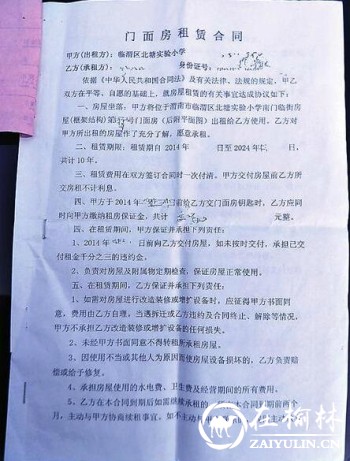 门面房租赁合同
甲方(出租方):临渭区北塘实验小学
乙方(承租方): 身份证号:
依据《中华人民共和国合同法》及有关法律、法规的规定,甲乙
双方在平等、自愿的基础上,就房屋租赁的有关事宜达成协议如下:
一、房屋坐落:甲方将位于渭南市临渭区北塘实验小学南门临街房
屋(框架结构)第 号门面房(后附平面图)出租给乙方使用,乙方对
甲方所出租的房屋作了充分了解,愿意承租。
二、租赁期限:租赁期自2014年 日至2024年 日,
共计10年。
三、租赁费用在双方签订合同时一次付清。甲方交付房屋前乙方所
交房租不计利息。
四、甲方于2014年 日前给乙方交门面房钥匙时,乙方应同
时间甲方缴纳租房保证金,共计 元整。
四、在租赁期间,甲方保证并承担下列责任:
1、2014年 日前向乙方交付房屋,如未按时交付,承担已交
付租金千分之三的违约金。
2、负责对房屋及附属物定期检查,保证房屋正常使用。
五、在租赁期间,乙方保证并承担下列责任:
1、如需对房屋进行改造装修或增扩设备时,应征得甲方书面同
意,费用由乙方自理,当遇拆迁或乙方违约及合同终止、解除等情况,
甲方不承担乙方改造装修或增扩设备的任何损失。
2、未经甲方书面同意不得转租所承租房屋。
3、因使用不当或其他人为原因而使房屋设备损坏的,乙方负责赔
偿或给予修复。
4、承担房屋使用的水电费、卫生费及经营期间的所有费用。
5、乙方在本合同到期后如需继续承租的,在本合同到期前两个
月,主动与甲方协商续租事宜,如不主动与甲方
在榆林
ZAIYULIN.CN